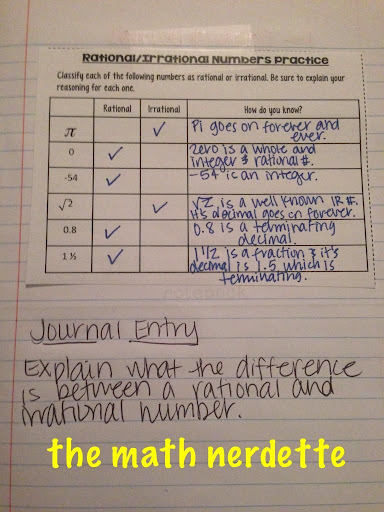 Rational/Irrational Numbers Practice
Classify each of the following numbers as rational or irrational. Be sure to explain your
reasoning for each one.
Rational Irrational How do you know?
π ✓ Pi goes on forever and
ever.
0 ✓ zero is a whole and
integer & rational #.
-54 ✓ -54 is an integer.
√2 ✓ √2 is a well known IR #.
It's decimal goes on forever.
0.8 ✓ 0.8 is a terminating
decimal.
1 ½ ✓ 1 1/2 is a fraction & it's
decimal is 1.5 which is
terminating.
Journal Entry
Explain what the difference
is between a rational and
irrational number.
the math nerdette